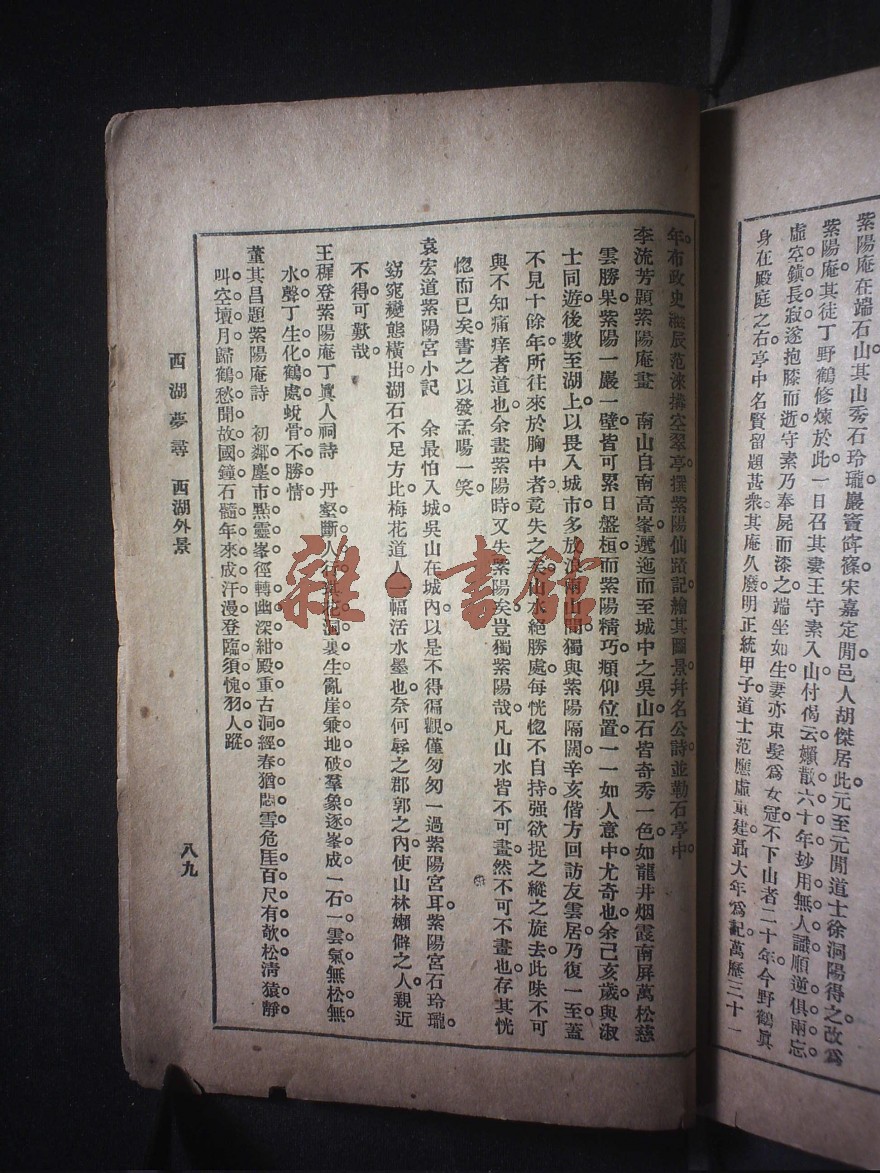 紫陽庵在瑞石山其山秀石玲瓏巖竇窈篠宋嘉定間邑人胡傑居此元至元間道士徐洞陽得之改爲
紫陽庵其徒丁野鶴修煉於此一日召其妻王守素入山付偈云嬾散六十年妙用無人識順逆俱兩忘
虛空鎭長寂遂抱膝而逝守素乃奉屍而漆之端坐如生妻亦束髮爲女冠不下山者二十年今野鶴眞
身在殿庭之右亭中名賢留題甚衆其庵久廢明正統甲子道士范應虛重建聶大年爲記萬歷三十一
年布政史繼辰范淶搆空翠亭撰紫陽仙蹟記繪其圖景幷名公詩並勒石亭中
李流芳題紫陽庵畫 南山自南高峯邐迤而至城中之吳山石皆奇秀一色如龍井烟霞南屏萬松慈
雲勝果紫陽一巖一壁皆可累日盤桓而紫陽精巧頫仰位置一一如人意中尤奇也余己亥歲與淑
士同遊後數至湖上以畏入城市多放浪兩山間獨與紫陽隔闊辛亥偕方回訪友雲居乃復一至蓋
不見十餘年所往來於胸中者竟失之矣山水絕勝處每恍惚不自持强欲捉之縱之旋去此味不可
與不知痛痒者道也余畫紫陽時又失紫陽矣豈獨紫陽哉凡山水皆不可畫然不可不畫也存其恍
惚而已矣書之以發孟陽一笑
袁宏道紫陽宮小記 余最怕入城吳山在城內以是不得徧觀僅匆匆一過紫陽宮耳紫陽宮石玲瓏
窈窕變態橫出湖石不足方此梅花道人一幅活水墨也奈何辱之郡郭之內使山林嬾僻之人親近
不得可歎哉
王穉登紫陽庵丁眞人祠詩 丹壑斷人行琪花洞裏生亂崖兼地破羣象逐峯成一石一雲氣無松無
水聲丁生化鶴處蛻骨不勝情
董其昌題紫陽庵詩 初鄰塵市點靈峯徑轉幽深紺殿重古洞經春猶悶雪危厓百尺有欹松淸猿靜
叫空壇月歸鶴愁聞故國鐘石髓年來成汗漫登臨須愧羽人蹤
西湖夢尋 西湖外景
八九
雜·書館